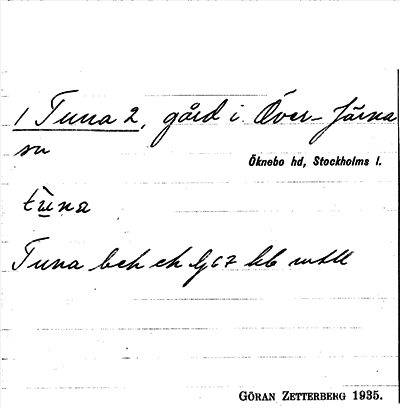 1 Tuna 2, gård i Över-Järna
sn
Öknebo hd, Stockholms l.
tùna
Tuna beb ek lj 67 kb
GÖRAN ZETTERBERG 1935.